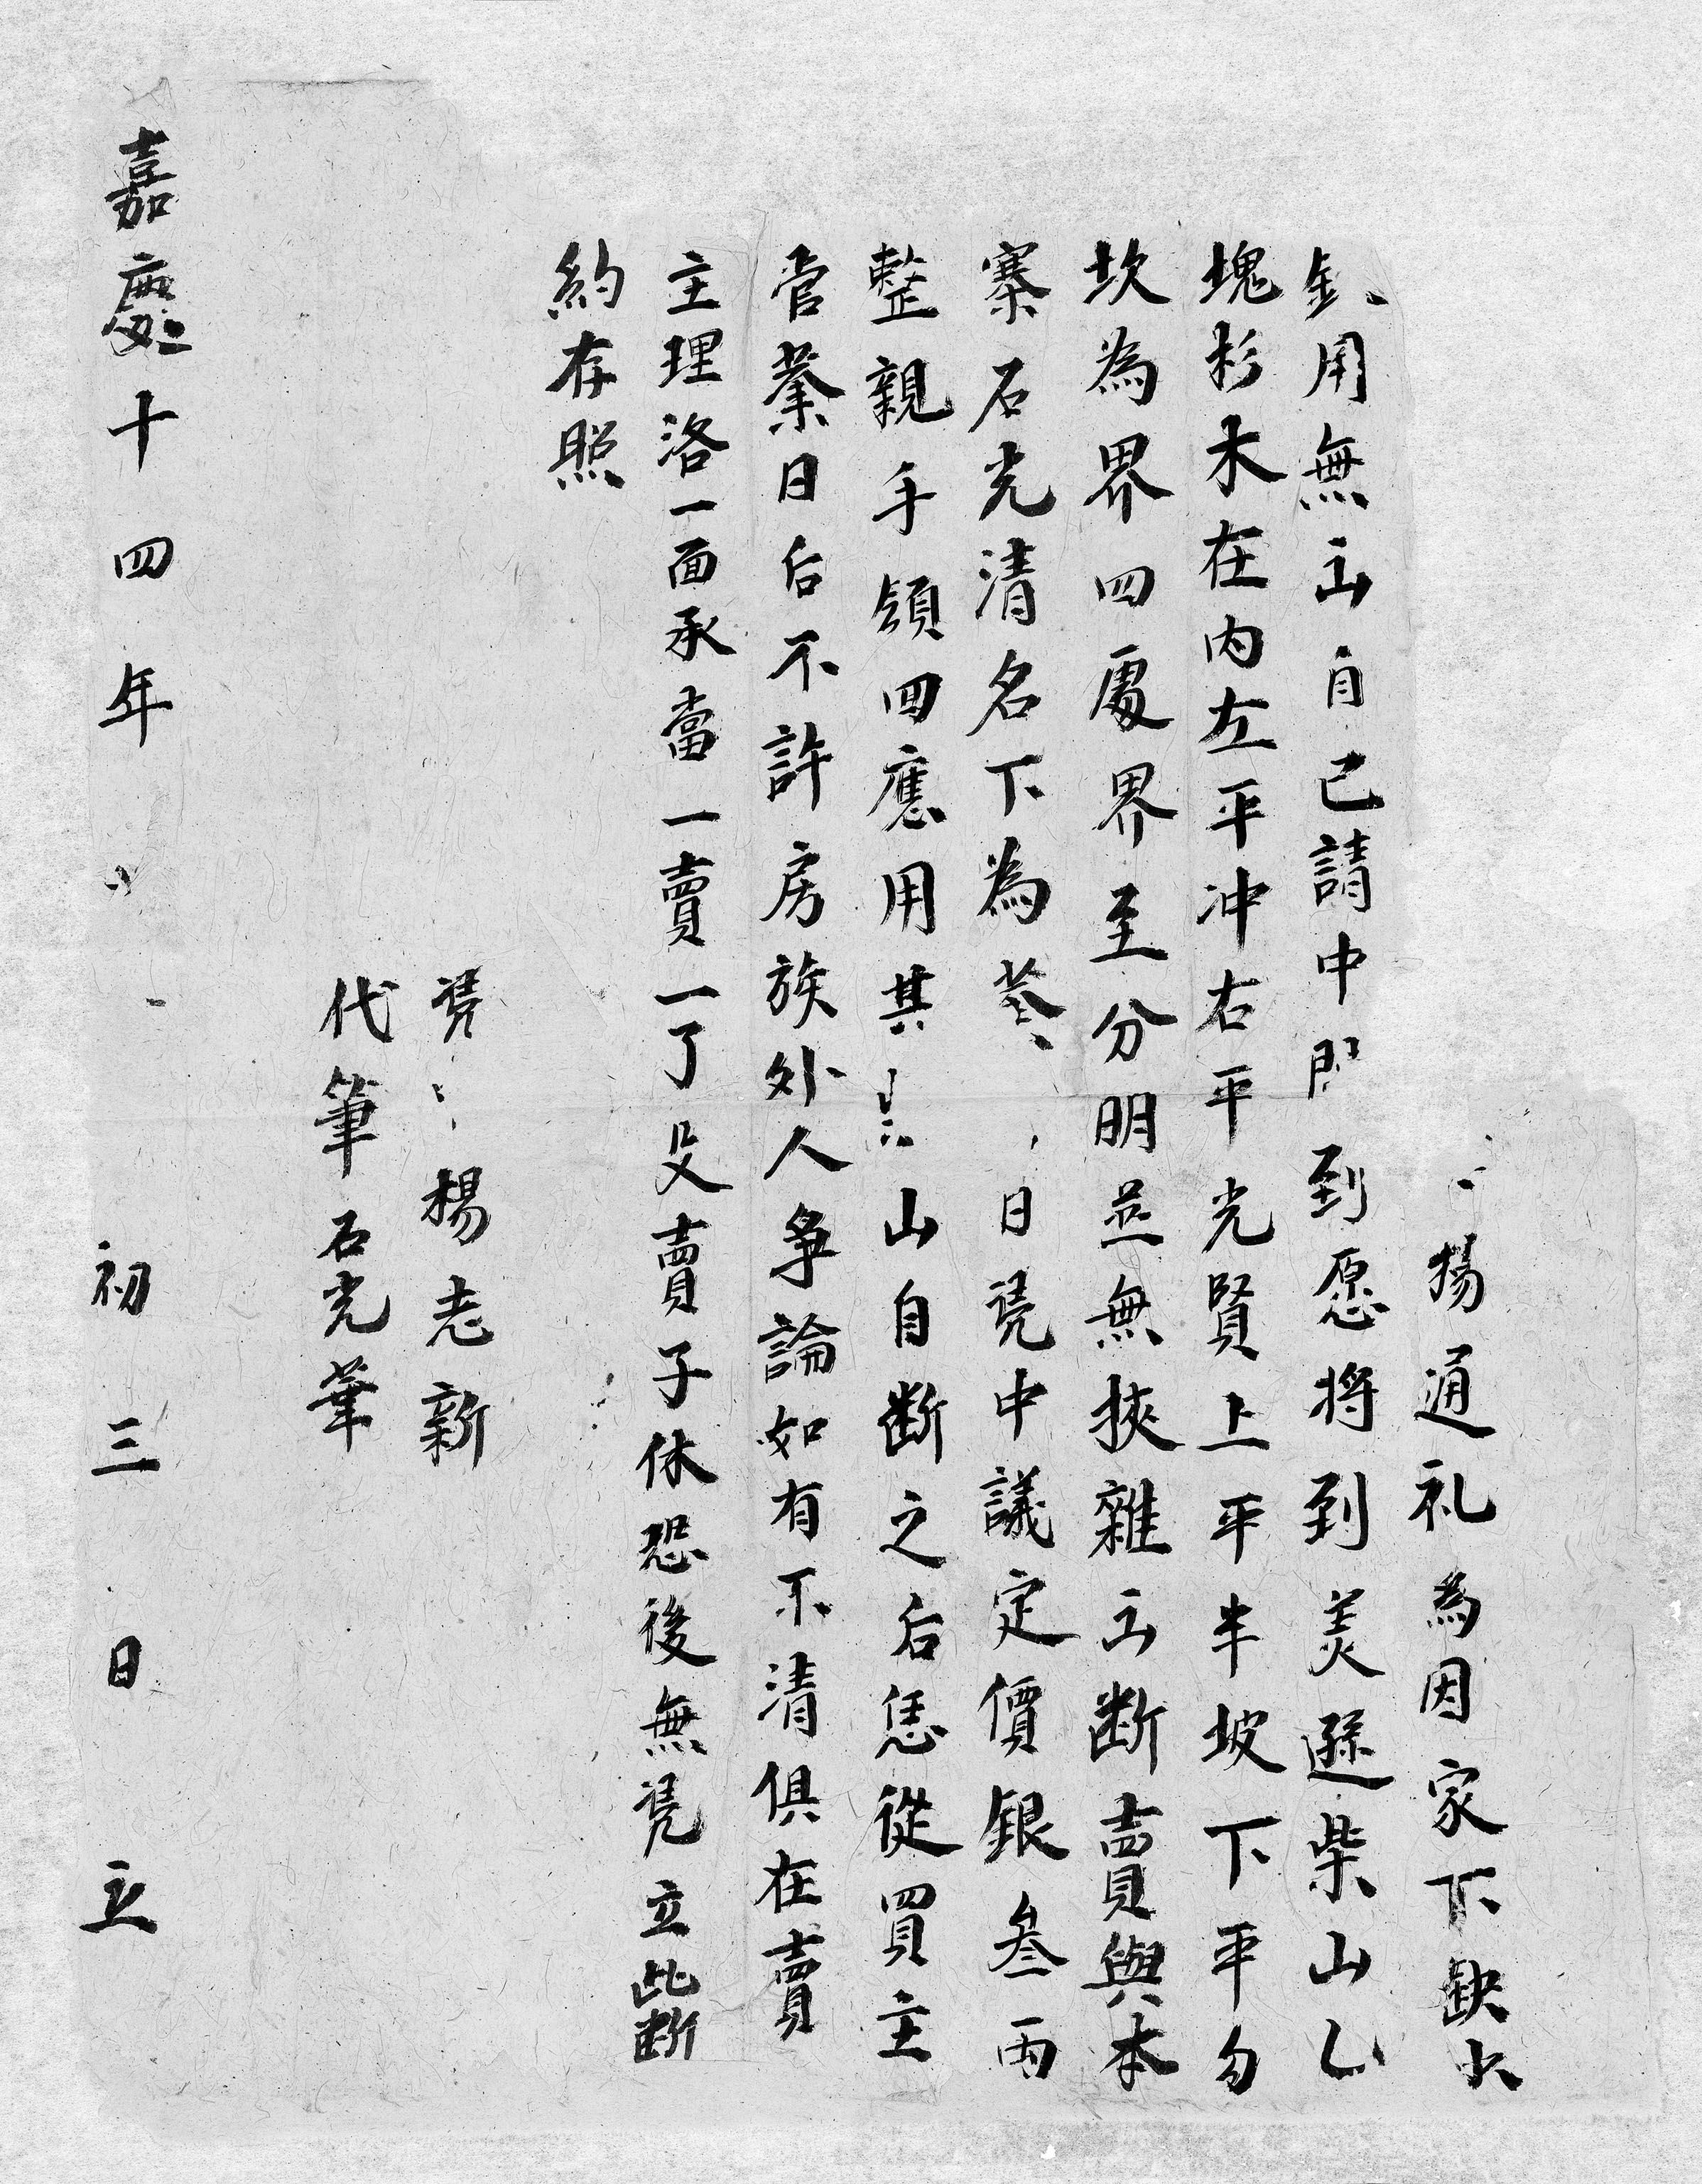 楊通礼為因家下缺少
銀用無山自己請中即到愿将到美遜柴山乙
塊杉木在内左平冲右平光賢上平半坡下平勿
坎為界四處界至分明並無挾雜山断賣與本
寨石光清名下為業日凴中議定價銀叁両
整親手領回應用其山自断之后恁從買主
管業日后不許房族外人爭論如有不清俱在賣
主理洛一面承當一賣一了父賣子休恐後無凴立此断
約存照
凴楊老新
代筆石光華
嘉慶十四年初三日立